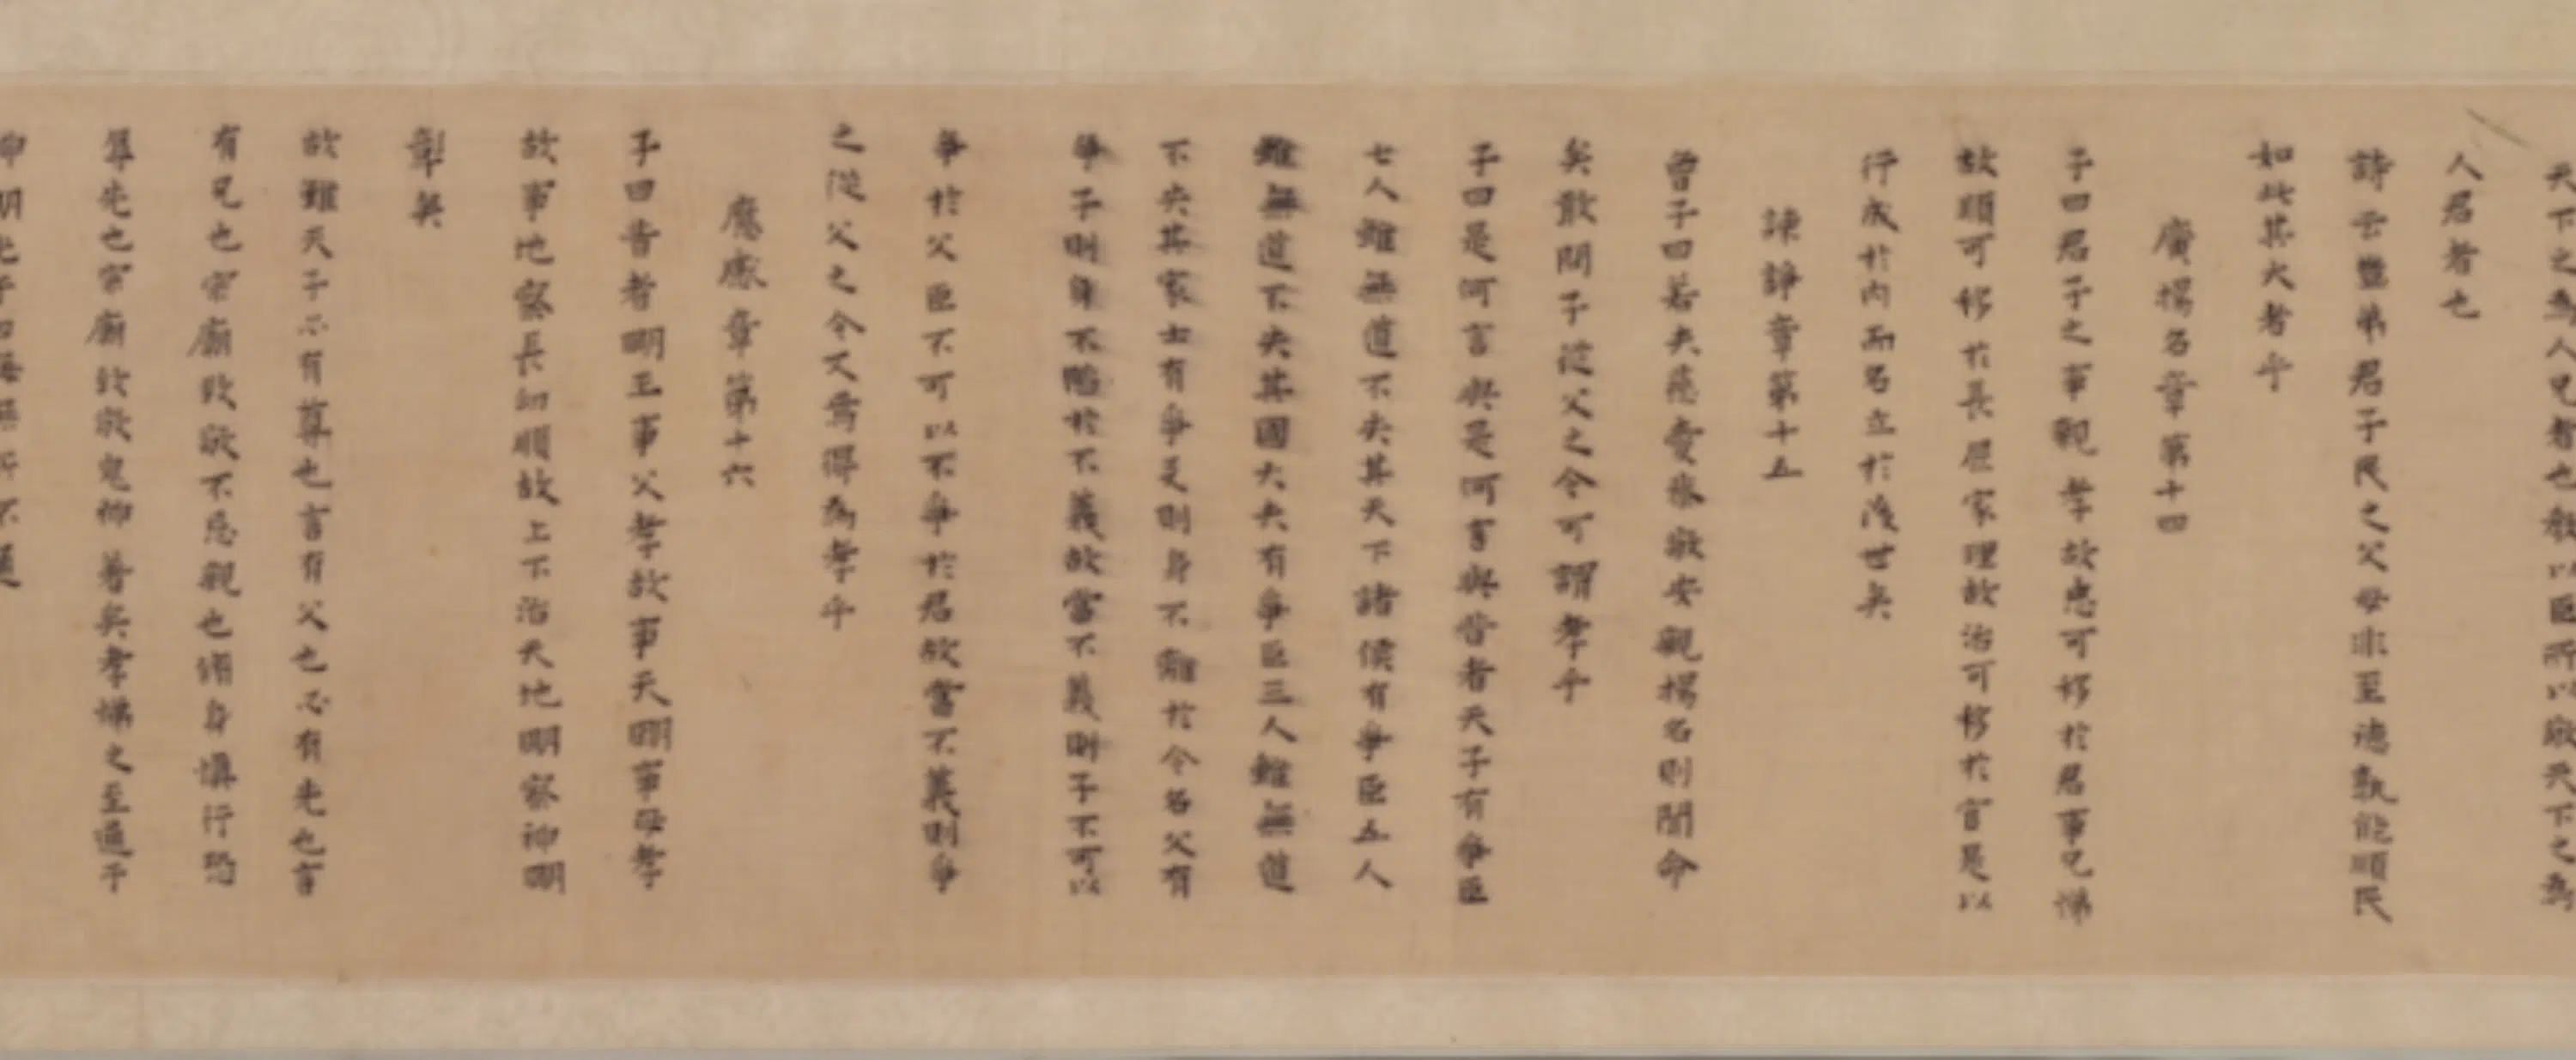 天下之為人兄者也教以臣所以敬天下之為
人君者也
詩云豈弟君子民之父母非至德孰能順民
如此其大者乎
廣揚名章第十四
子曰君子之事親孝故忠可移於君事兄悌
故順可移於長居家理故治可移於官是以
行成於內而名立於後世矣
諫諍章第十五
曾子曰若夫慈愛恭敬安親揚名則聞命
矣敢問子從父之令可謂孝乎
子曰是何言與是何言與昔者天子有爭臣
七人雖無道不失其天下諸侯有爭臣五人
雖無道不失其國大夫有爭臣三人雖無道
不失其家士有爭友則身不離於令名父有
爭子則身不陷於不義故當不義則子不可以
爭於父臣不可以不爭於君故當不義則爭
之從父之令又焉得為孝乎
應感章第十六
子曰昔者明王事父孝故事天明事母孝
故事地察長幼順故上下治天地明察神明
彰矣
故雖天子必有尊也言有父也必有先也言
有兄也宗廟致敬不忘親也脩身慎行恐
辱先也宗廟致敬鬼神著矣孝悌之至通于
神明光于四海無所不通